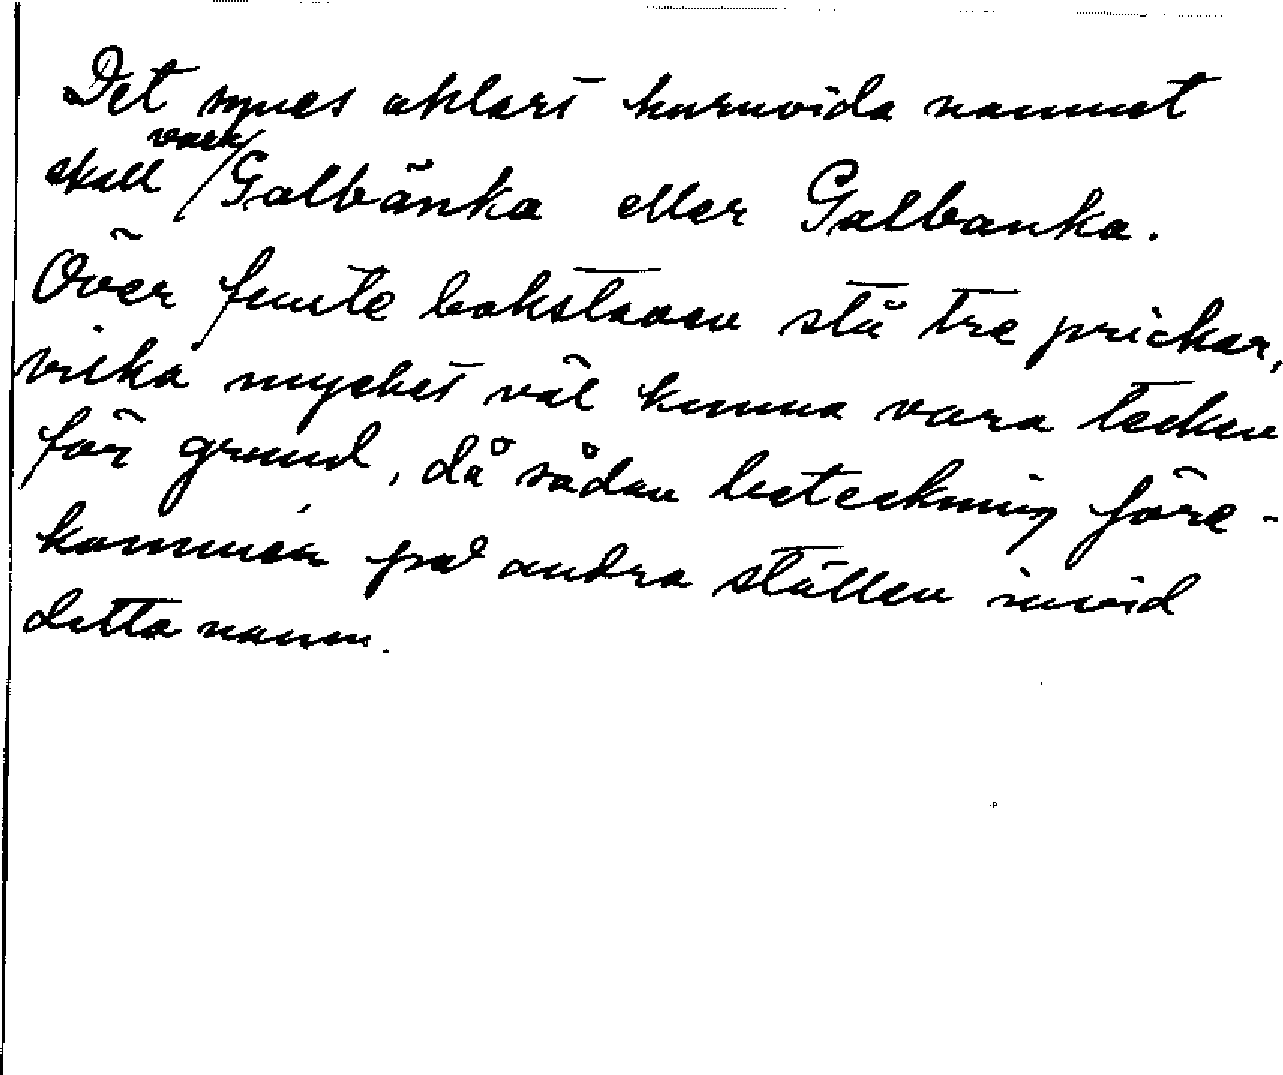 Det synes oklart huruvida namnet
skall vara Galbänka eller Galbanka.
Över femte bokstaven stå tre prickar,
vilka mycket väl kunna vara tecken
för grund, då sådan beteckning före-
kommer på andra ställen invid
detta namn.